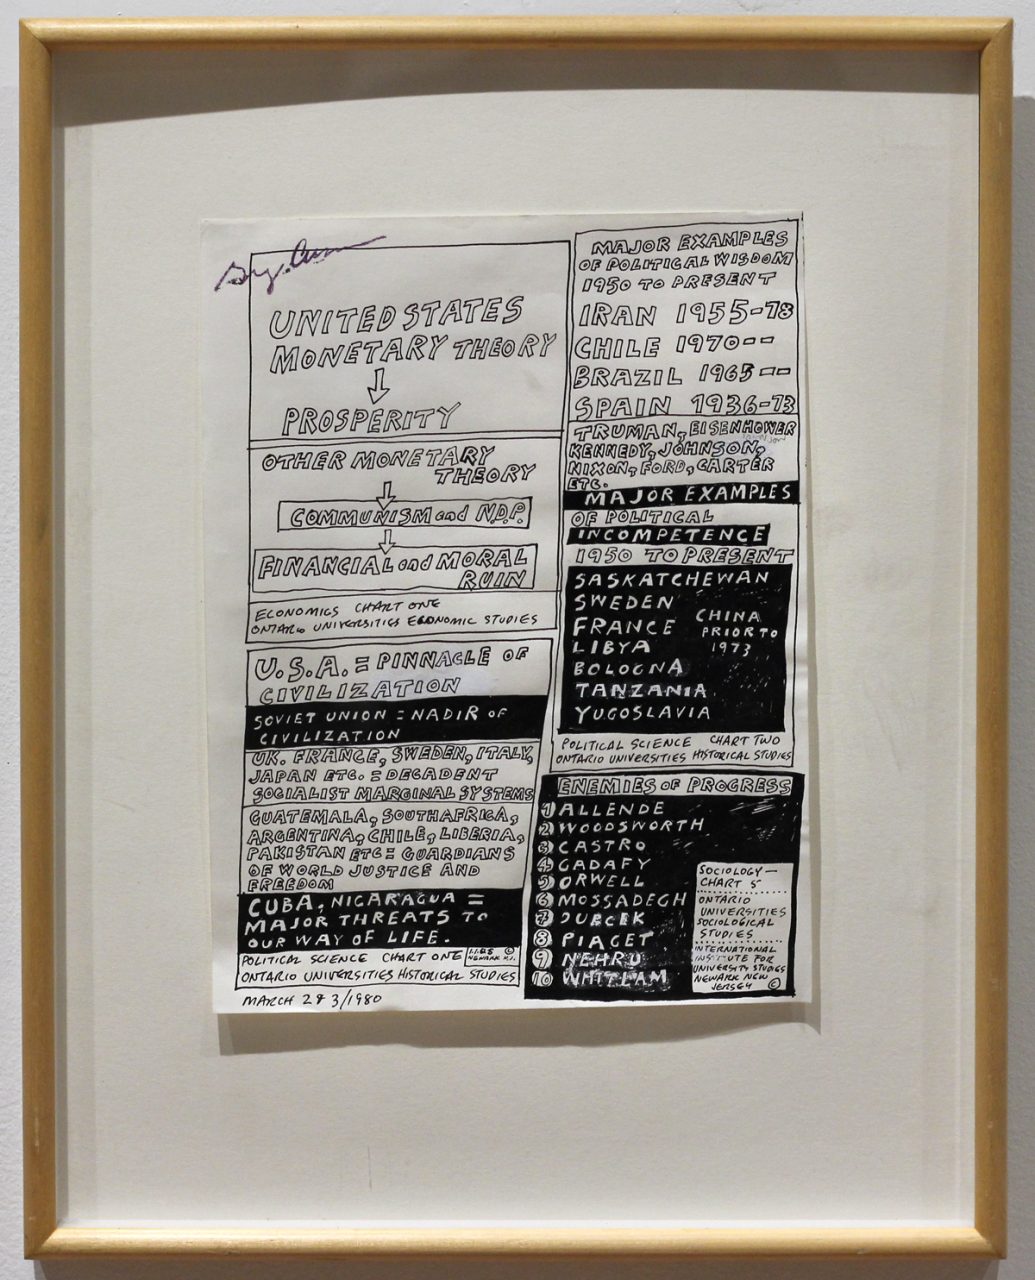 Greg. Curnoe
UNITED STATES
MONETARY THEORY
PROSPERITY
OTHER MONETARY
THEORY
COMMUNISM and N.D.P.
FINANCIAL and MORAL
RUIN
ECONOMICS CHART ONE
ONTARIO UNIVERSITIES ECONOMIC STUDIES
U.S.A. = PINNACLE OF
CIVILIZATION
SOVIET UNION = NADIR OF
CIVILIZATION
UK. FRANCE, SWEDEN, ITALY,
JAPAN ETC. = DECADENT
SOCIALIST MARGINAL SYSTEMS
GUATEMALA, SOUTH AFRICA,
ARGENTINA, CHILE, LIBERIA,
PAKISTAN ETC = GUARDIANS
OF WORLD JUSTICE AND
FREEDOM
CUBA, NICARAGUA =
MAJOR THREATS TO
OUR WAY OF LIFE.
POLITICAL SCIENCE CHART ONE
©
NEWARK N.J.
ONTARIO UNIVERSITIES HISTORICAL STUDIES
MARCH 2 & 3/1980
MAJOR EXAMPLES
OF POLITICAL WISDOM
1950 TO PRESENT
IRAN 1955-78
CHILE 1970--
BRAZIL 1965--
SPAIN 1936-73
TRUMAN, EISENHOWER
KENNEDY, JOHNSON,
NIXON, FORD, CARTER
ETC.
MAJOR EXAMPLES
OF POLITICAL
INCOMPETENCE
1950 TO PRESENT
SASKATCHEWAN
SWEDEN
FRANCE
LIBYA
BOLOGNA
TANZANIA
YUGOSLAVIA
CHINA
PRIOR TO
1973
POLITICAL SCIENCE CHART TWO
ONTARIO UNIVERSITIES HISTORICAL STUDIES
ENEMIES OF PROGRESS
1 ALLENDE
2 WOODSWORTH
3 CASTRO
4 GADAFY
5 ORWELL
6 MOSSADEGH
7 DUBCEK
8 PIAGET
9 NEHRU
10 WHITLAM
SOCIOLOGY—
CHART 5
ONTARIO
UNIVERSITIES
SOCIOLOGICAL
STUDIES
INTERNATIONAL
INSTITUTE FOR
UNIVERSITY STUDIES
NEWARK NEW
JERSEY ©